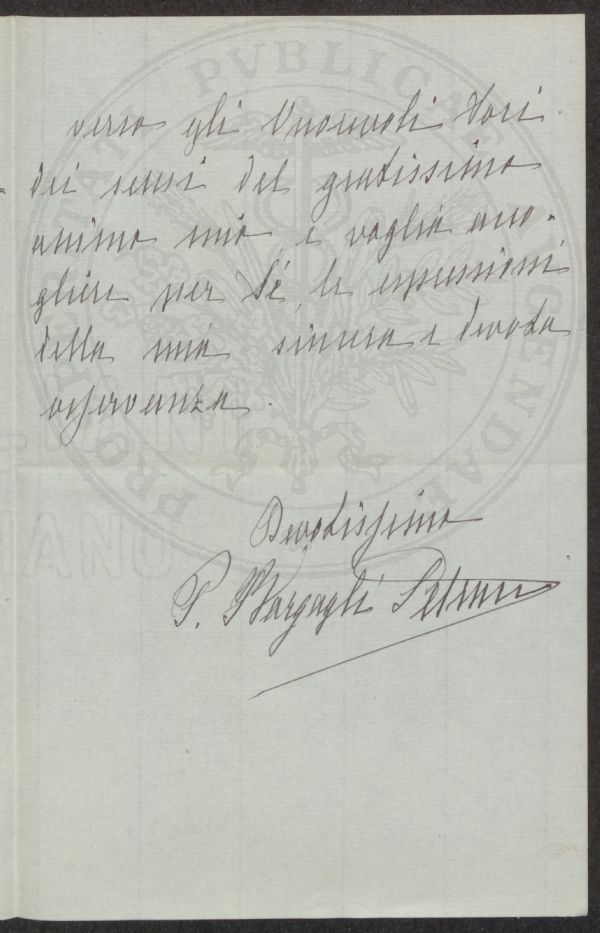 verso gli Onorevoli Soci
dei sensi del gratissimo
animo mio, e voglia acco-
gliere per Sé, le espressioni
della mia sincera e devota
osservanza.
Devotissimo
P. Bargagli Petrucci
PROSPERITATI PVBLICAE AVGENDAE